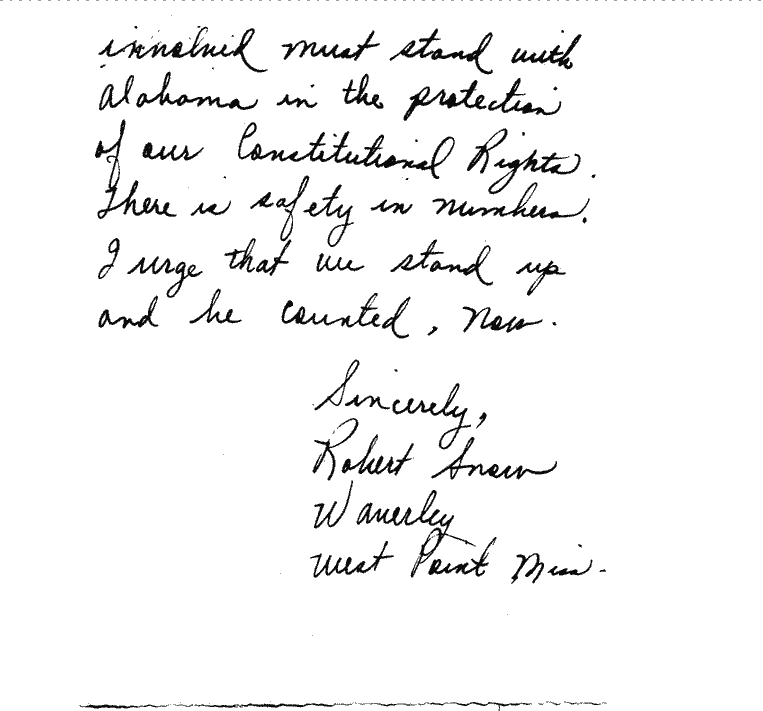 involved must stand with
Alabama in the protection
of our Constitutional Rights.
There is safety in numbers.
I urge that we stand up
and be counted, now.
Sincerely,
Robert Snow
Waverley
West Point Miss.